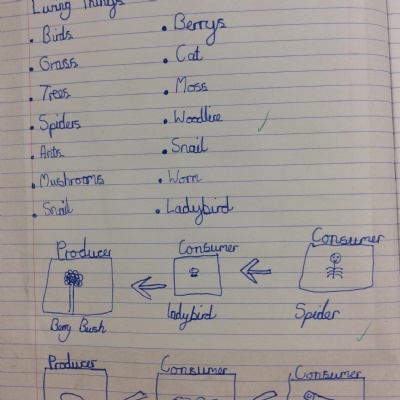 Living Things
• Birds
• Grass
• Trees
• Spiders
• Ants
• Mushrooms
• Snail
• Berrys
• Cat
• Moss
• Woodlice
• Snail
• Worm
• Ladybird
Producer
Consumer
Consumer
Berry Bush
Ladybird
Spider
Producer
Consumer
Consumer